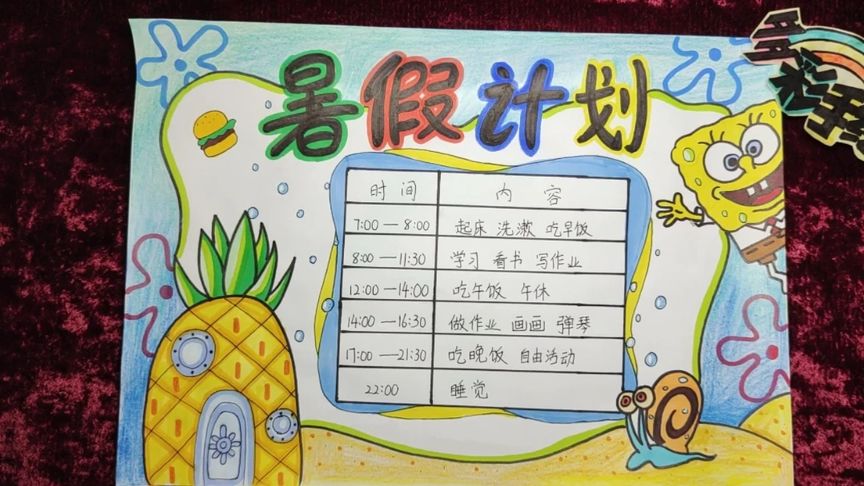 暑假计划
多彩我
时间 内容
7:00—8:00 起床 洗漱 吃早饭
8:00—11:30 学习 看书 写作业
12:00—14:00 吃午饭 午休
14:00—16:30 做作业 画画 弹琴
17:00—21:30 吃晚饭 自由活动
22:00 睡觉